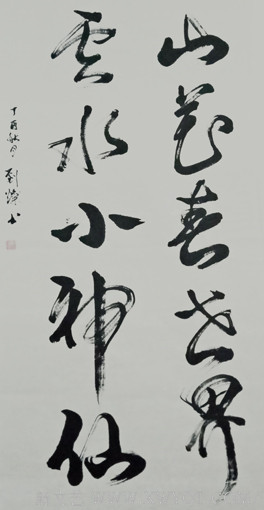 山花春世界
云水小神仙
丁酉秋月刘
书